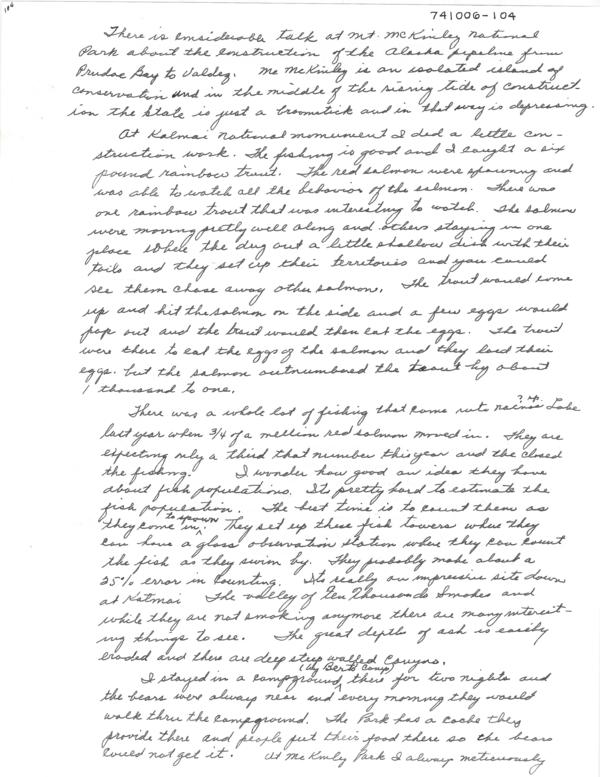 106
741006-104
There is considerable talk at Mt. McKinley National
Park about the construction of the Alaska pipeline from
Prudoe Bay to Valdez. Mc McKinley is an isolated island of
conservation and in the middle of the rising tide of construct-
ion the State is just a broomstick and in that way is depressing.
At Katmai National monument I did a little con-
struction work. The fishing is good and I caught a six
pound rainbow trout. The red salmon were spawning and
was able to watch all the behavior of the salmon. There was
one rainbow trout that was interesting to watch. The salmon
were moving pretty well along and others staying in one
place while the dug out a little shallow dish with their
tails and they set up their territories and you could
see them chase away other salmon. The trout would come
up and hit the salmon on the side and a few eggs would
pop out and the trout would then eat the eggs. The trout
were there to eat the eggs of the salmon and they laid their
eggs. but the salmon outnumbered the trout by about
1 thousand to one.
There was a whole lot of fishing that came into Lake
last year when 3/4 of a million red salmon moved in. They are
expecting only a third that number this year and the closed
the fishing. I wonder how good an idea they have
about fish populations. Its pretty hard to estimate the
fish population. The best time is to count them as
they come in to spawn. They set up these fish towers where they
can have a glass observation station where they can count
the fish as they swim by. They probably make about a
25% error in counting. Its really an impressive site down
at Katmai The valley of Ten Thousands Smokes and
while they are not smoking anymore there are many interest-
ing things to see. The great depths of ash is easily
eroded and there are deep steep walled canyons.
I stayed in a campground (by Berts Camp) there for two nights and
the bears were always near and every morning they would
walk thru the campground. The Park has a cache they
provide there and people put their food there so the bears
could not get it. At McKinley Park I always meticuously